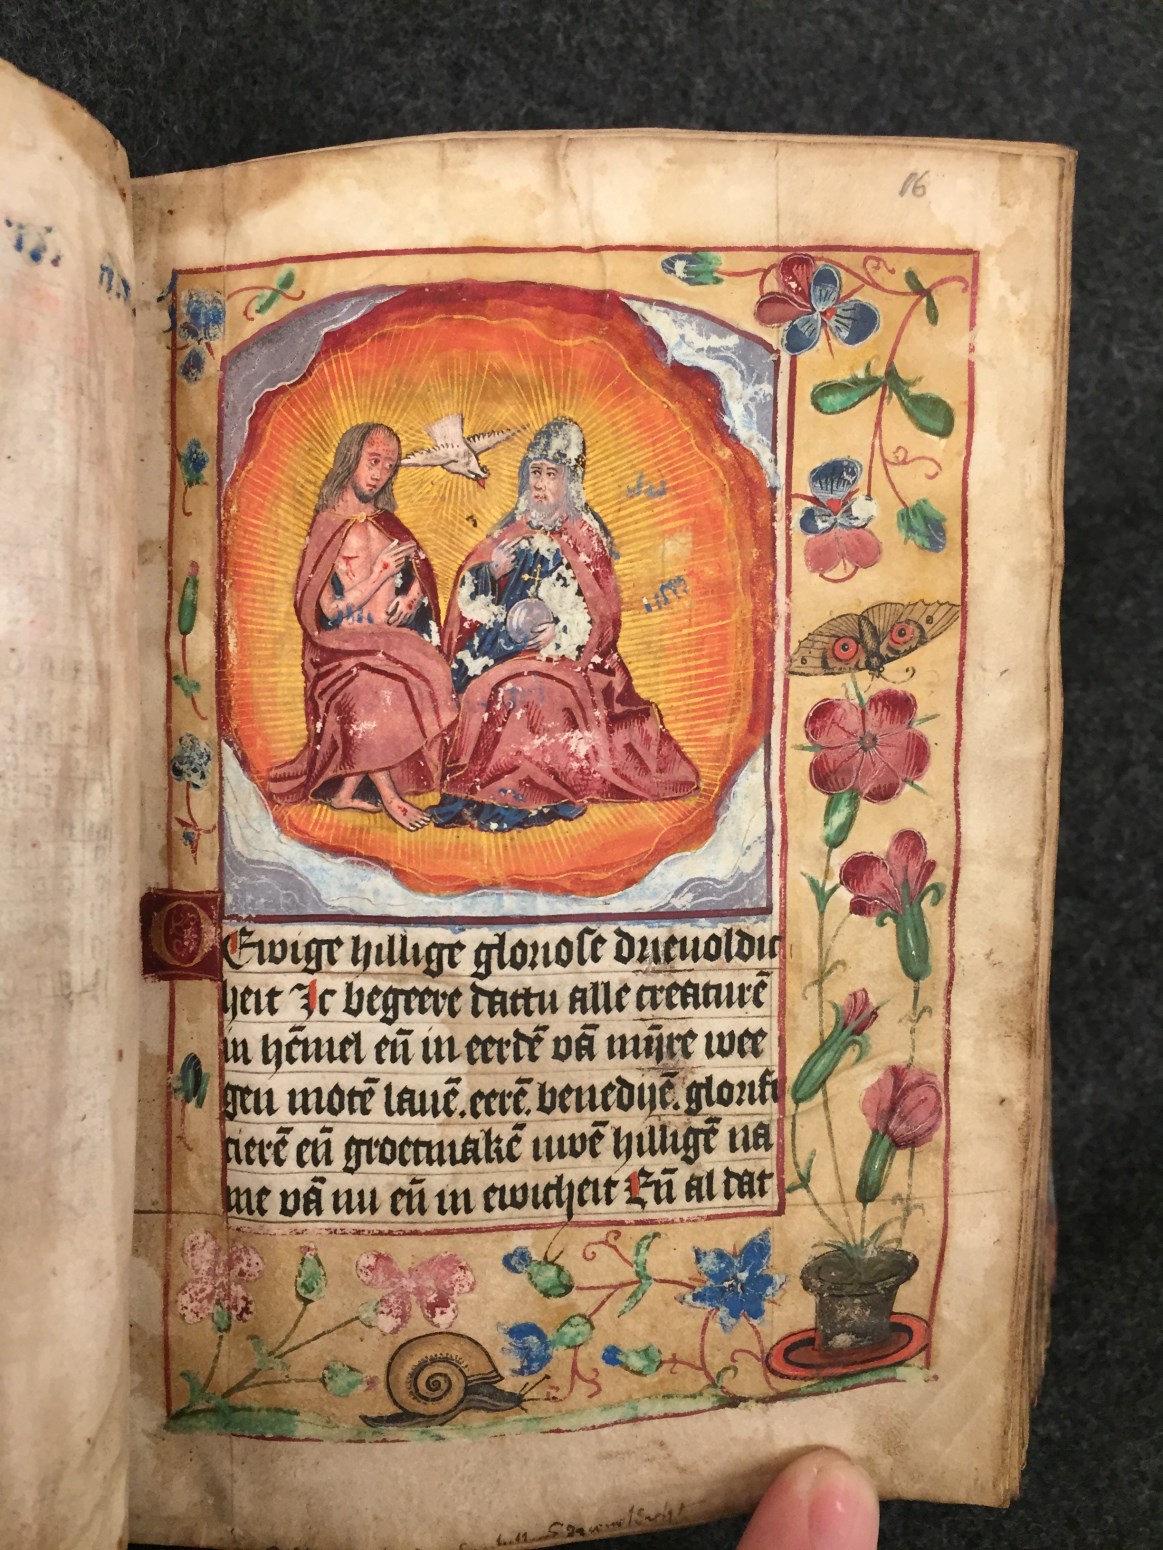 16
O Ewige hillige gloriose drieuoldic
heit Ic begeere dattu alle creaturē
in hēmel eñ in eerdē vā mijre wee
gen motē lauē. eerē. benedyē. glorifi
cierē eñ groetmakē uwē hilligē na
me vā nu eñ in ewicheit Eñ al dat